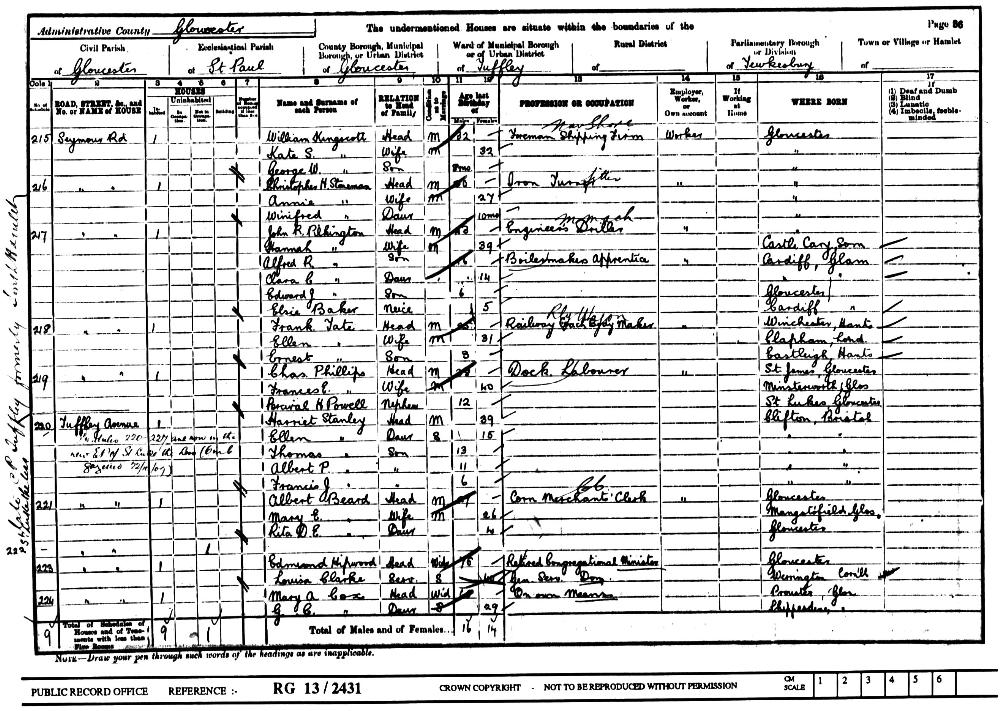 Administrative County Gloucester The undermentioned Houses are situate within the boundaries of the Page 36
Civil Parish Ecclesiastical Parish County Borough, Municipal Borough, or Urban District Ward of Municipal Borough or of Urban District Rural District Parliamentary Borough or Division Town or Village or Hamlet
of Gloucester of St Paul of Gloucester of Tuffley of of Tewkesbury of
Cols 1 2 3 4 5 6 7 8 9 10 11 12 13 14 15 16 17
No. of Schedule ROAD, STREET, &c., and No. or NAME of HOUSE HOUSES Inhabited Uninhabited In Occupation Not in Occupation Building Name and Surname of each Person RELATION to Head of Family Condition as to Marriage Age last Birthday of Males Females PROFESSION OR OCCUPATION Employer, Worker, or Own account If Working at Home WHERE BORN If (1) Deaf and Dumb (2) Blind (3) Lunatic (4) Imbecile, feeble-minded
215 Seymour Rd 1 William Kingscott Head M 32 Foreman Shipping Firm Worker Gloucester
Kate S. " Wife M 32 "
George W. " Son "
216 " " 1 Christophr H. Stoneman Head M Iron Turner " "
Annie " Wife M 27 "
Winifred " Daur 10mo "
217 " " 1 John R. Pilkington Head M Engineers Driller " "
Hannah " Wife M 39 Castle Cary Som
Alfred R. " Son Boilermakers Apprentice " Cardiff, Glam
Clara E " Daur 14 " "
Edward J. " Son 6 Gloucester
Elsie Baker Neice 5 Cardiff "
218 " " 1 Frank Tate Head M Railway Maker " Winchester, Hants
Ellen " Wife M 31 Clapham, Lond
Ernest " Son 3 Eastleigh, Hants
219 " " 1 Chas. Phillips Head M Dock Labourer " St James, Gloucester
Frances E. " Wife M 40 Minsterworth, Glos
Percival H Powell Nephew 12 St Lukes, Gloucester
220 Tuffley Avenue 1 Harriet Stanley Head M 39 Clifton, Bristol
Ellen " Daur S 15
Thomas " Son 13
Albert P. " " 11
Francis J " 6
221 " " 1 Albert Beard Head M Corn Merchants' Clerk " Gloucester
Mary E. " Wife M 26 Mangotsfield, Glos.
Rita D E. " Daur 4 Gloucester
222 " " 1
223 " " 1 Edmund Hipwood Head Widr 76 Retired Congregational Minister Gloucester
Louisa Clarke Serv. S Gen Serv. Dom Werrington Corn'll
224 " " 1 Mary A Cox Head Wid On own Means Glos
G. E. " Daur S 29
9 Total of Schedules of Houses and of Tenements with less than Five Rooms 9 1 Total of Males and of Females... 16 14
NOTE—Draw your pen through such words of the headings as are inapplicable.
PUBLIC RECORD OFFICE REFERENCE :- RG 13/2431 CROWN COPYRIGHT - NOT TO BE REPRODUCED WITHOUT PERMISSION CM SCALE 1 2 3 4 5 6